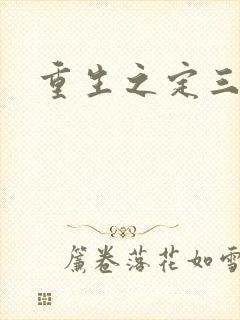 重生之定三
簾卷落花如雪